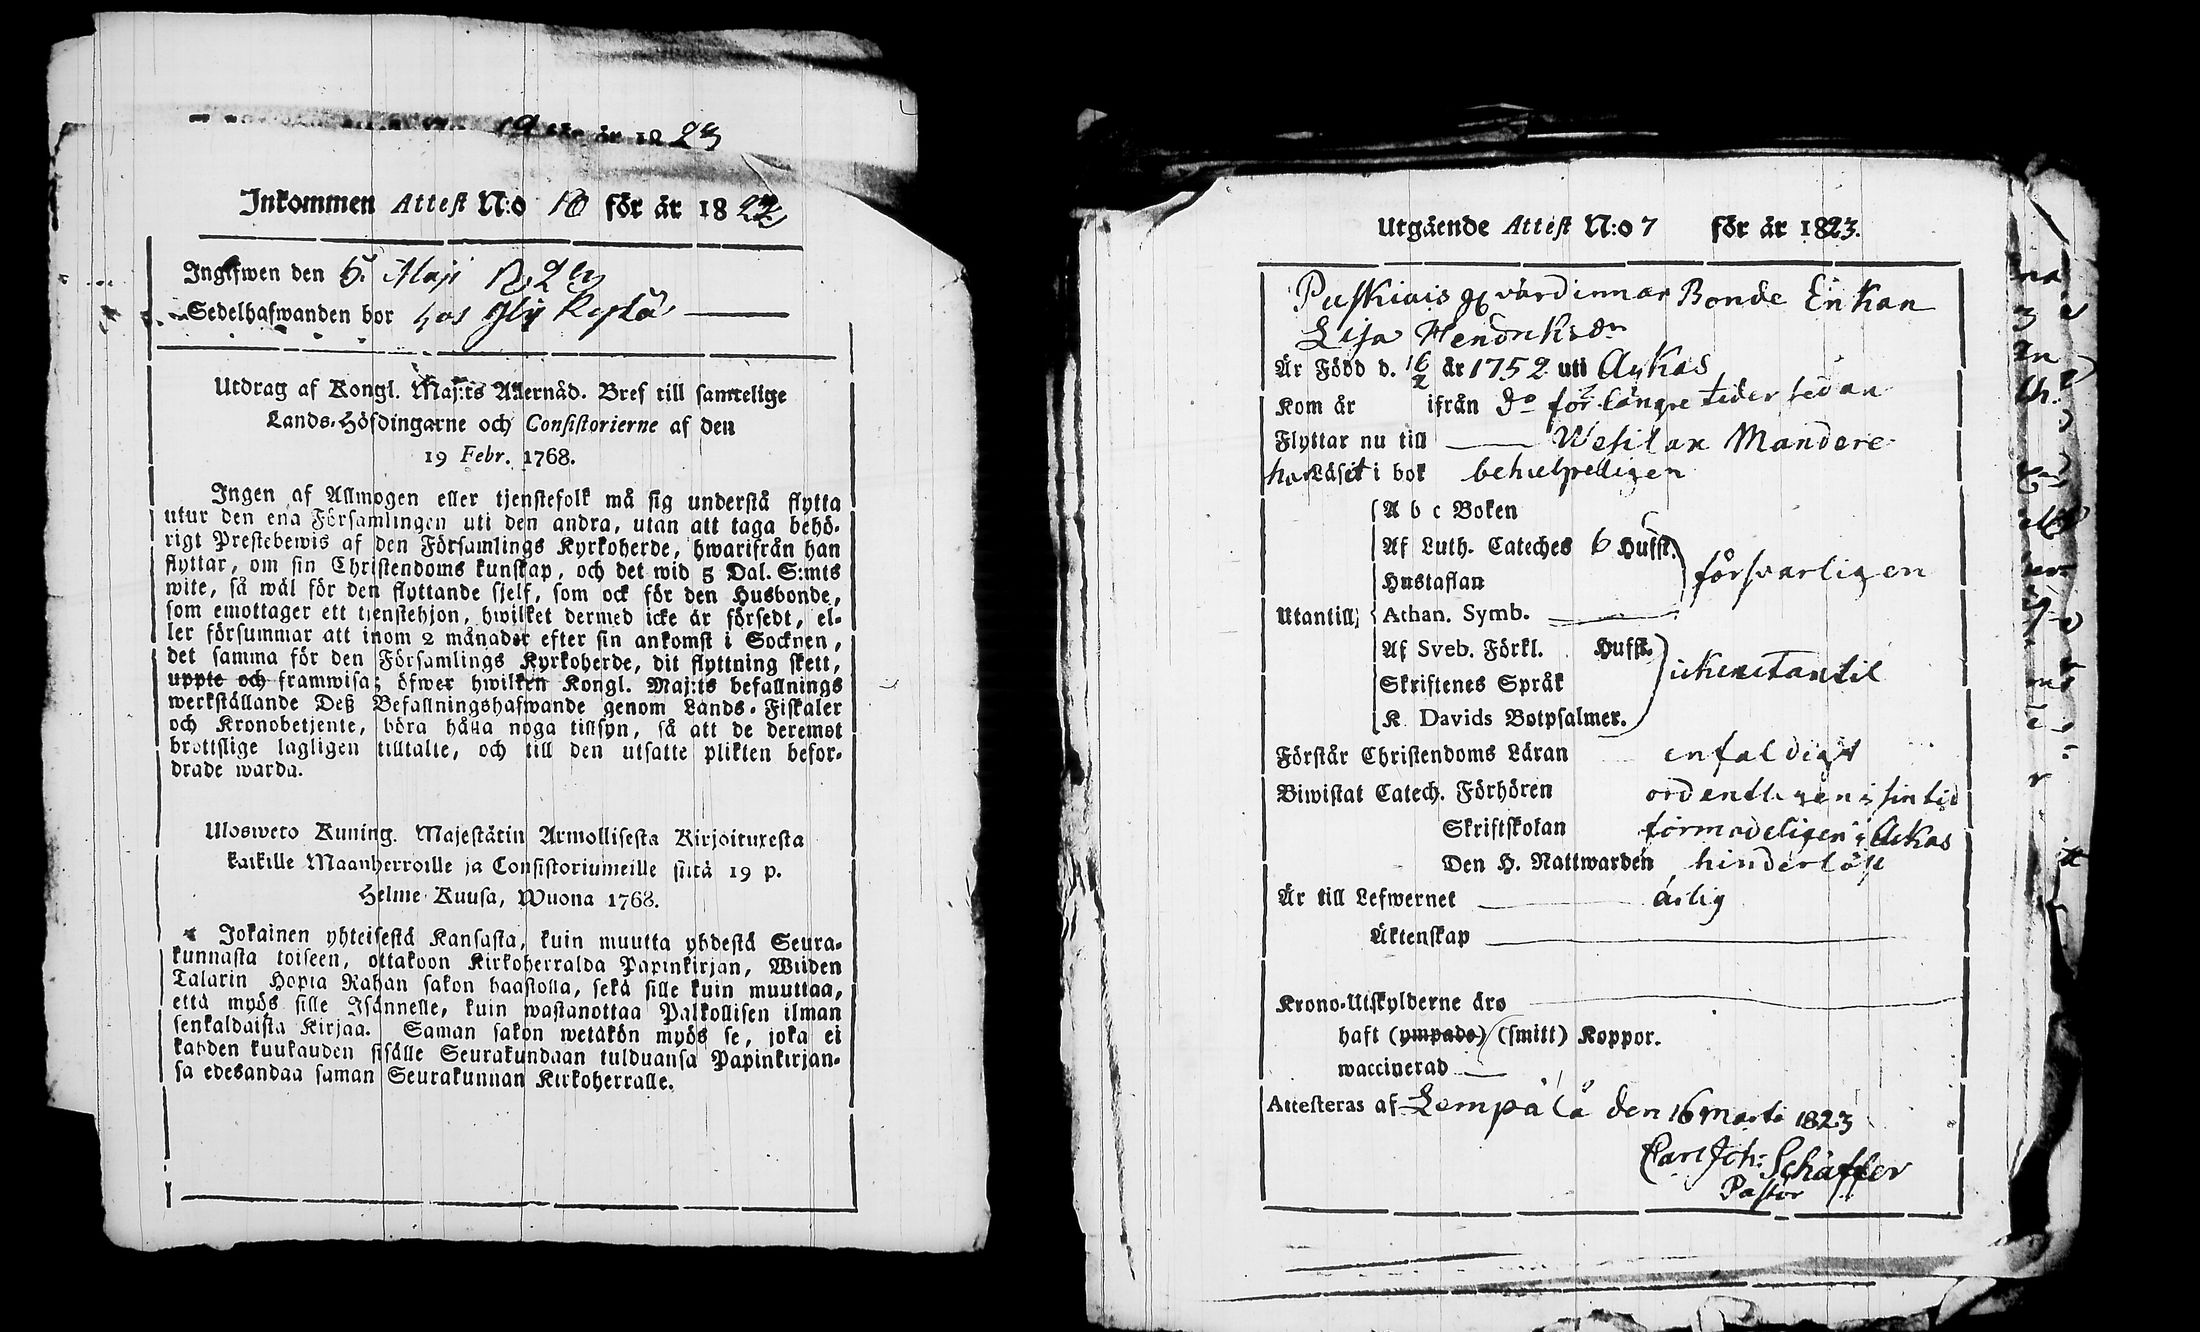 år 18 23
Inkommen Attest N:o 10 för år 18 23
Ingifwen den 5. Maji 1823
Sedelhafwanden bor hos
Utdrag af Kongl. Maj:ts Allernåd. Bref till samtelige
Lands-Höfdingarne och Consistorierne af den
19 Febr. 1768.
Ingen af Allmogen eller tjenstefolk må sig understå flytta
utur den ena Församlingen uti den andra, utan att taga behö-
rigt Prestebewis af den Församlings Kyrkoherde, hwarifrån han
flyttar, om sin Christendoms kunskap, och det wid 5 Dal. S:mts
wite, så wäl för den flyttande sjelf, som ock för den Husbonde,
som emottager ett tjenstehjon, hwilket dermed icke är försedt, el-
ler försummar att inom 2 månader efter sin ankomst i Socknen,
det samma för den Församlings Kyrkoherde, dit flyttning skett,
uppte och framwisa; öfwer hwilken Kongl. Maj:ts befallnings
werkställande Deß Befallningshafwande genom Lands-Fiskaler
och Kronobetjente, böra hålla noga tillsyn, så att de deremot
brottslige lagligen tilltalte, och till den utsatte plikten befor-
drade warda.
Ulosweto Kuning. Majestätin Armollisesta Kirjoituxesta
kaikille Maanherroille ja Consistoriumeille siitä 19 p.
Helme Kuusa, Wuona 1768.
Jokainen yhteisestä Kansasta, kuin muutta yhdestä Seura-
kunnasta toiseen, ottakoon Kirkoherralda Papinkirjan, Wiiden
Talarin Hopia Rahan sakon haastolla, sekä sille kuin muuttaa,
että myös sille Isännelle, kuin wastanottaa Palkollisen ilman
senkaldaista Kirjaa. Saman sakon wetäkön myös se, joka ei
kahden kuukauden sisälle Seurakundaan tulduansa Papinkirjan-
sa edesandaa saman Seurakunnan Kirkoherralle.
Utgående Attest N:o 7 för år 1823.
Puskiais gl värdinnan Bonde Enkan
Lisa Hendriksdr
Är Född d. 16/2 år 1752 uti Ackas
Kom år ifrån do för längre tider sedan
Flyttar nu till Wesilax Mandere
har Läsit i bok behielpeligen
A b c Boken
Af Luth. Cateches 6 Hufst.
Hustaflan
försvarligen
Utantill, Athan. Symb.
Af Sveb. Förkl. Hufst.
Skriftenes Språk
K. Davids Botpsalmer.
icke utantil
Förstår Christendoms Läran enfaldigt
Biwistat Catech. Förhören ordentligen i sin tid
Skriftskolan förmodeligen i Ackas
Den H. Nattwarden hinderlöst
Är till Lefwernet ärlig
Äktenskap
Krono-Utskylderne äro
haft (ympade) (smitt) Koppor.
waccinerad
Attesteras af Lempälä den 16 Marti 1823
Carl Joh: Schäffer
Pastor